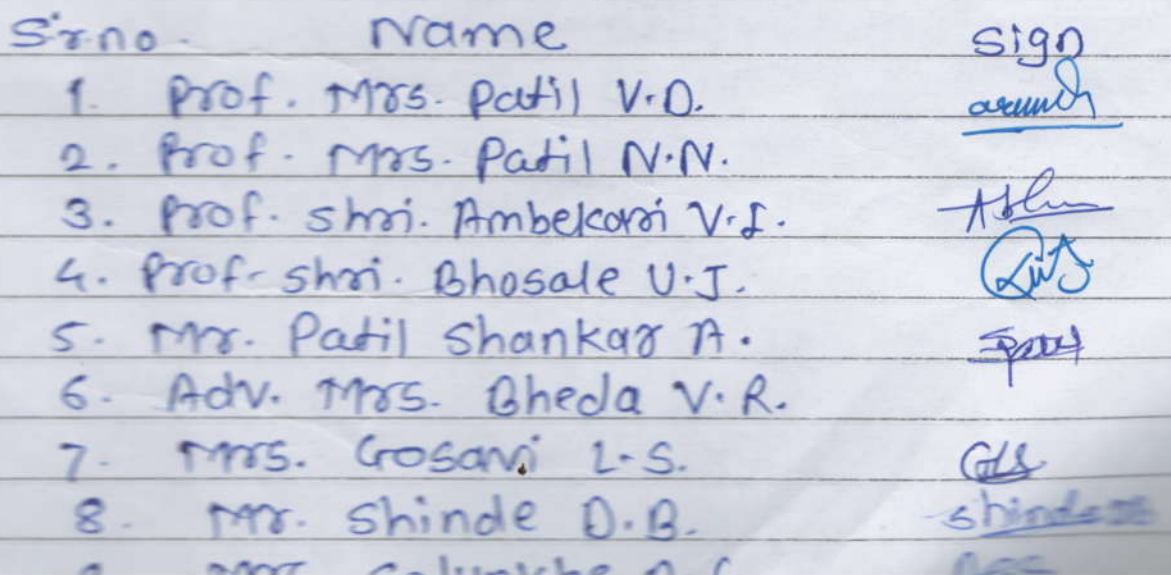 Sr.no. Name Sign
1. Prof. Mrs. Patil V.D.
2. Prof. Mrs. Patil N.N.
3. Prof. Shri. Ambekari V.I.
4. Prof. Shri. Bhosale U.J.
5. Mr. Patil Shankar A.
6. Adv. Mrs. Bheda V.R.
7. Mrs. Gosavi L.S. GLS
8. Mr. Shinde D.B. Shinde DB